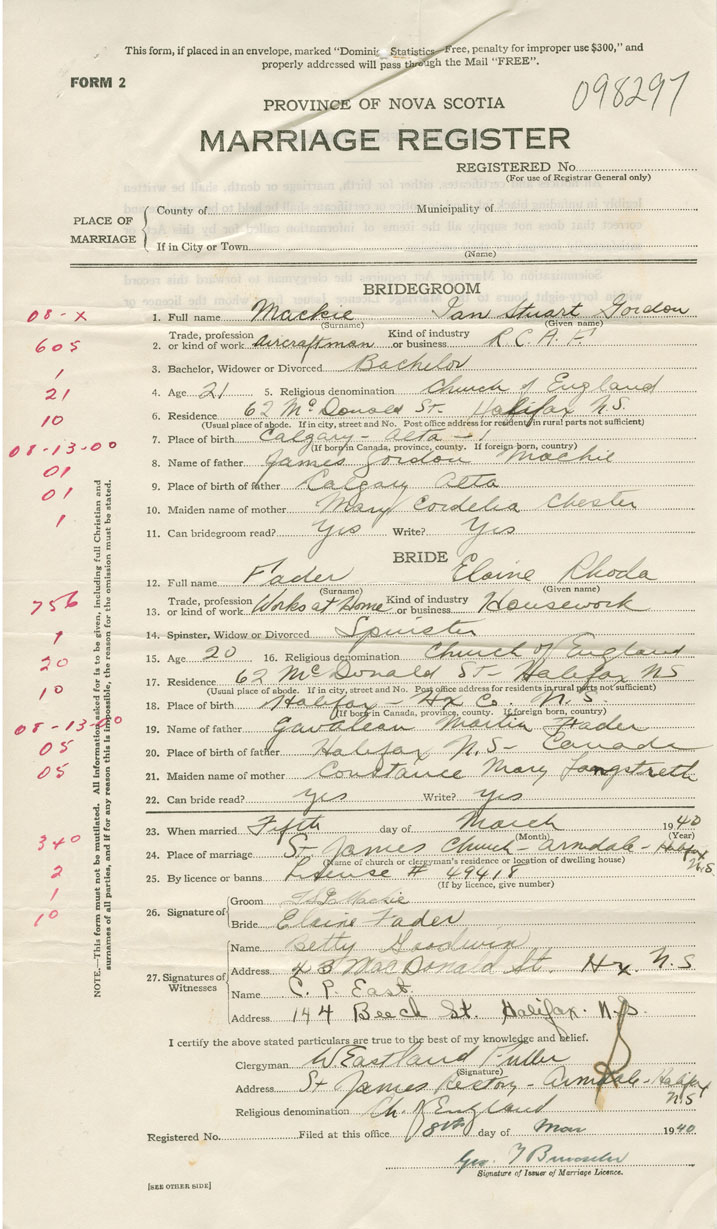 This form, if placed in an envelope, marked "Dominion Statistics—Free, penalty for improper use $300," and
properly addressed will pass through the Mail "FREE".
FORM 2
098297
PROVINCE OF NOVA SCOTIA
MARRIAGE REGISTER
REGISTERED No.
(For use of Registrar General only)
PLACE OF MARRIAGE
County of Municipality of
If in City or Town
(Name)
BRIDEGROOM
08-x
1. Full name Mackie Ian Stuart Gordon
(Surname) (Given name)
605
2. Trade, profession or kind of work Aircraftman Kind of industry or business R.C.A.F.
1
3. Bachelor, Widower or Divorced Bachelor
21
4. Age 21 5. Religious denomination Church of England
10
6. Residence 62 McDonald St- Halifax N.S.
(Usual place of abode. If in city, street and No. Post office address for residents in rural parts not sufficient)
08-13-00
7. Place of birth Calgary - Alta -
(If born in Canada, province, county. If foreign born, country)
01
8. Name of father James Gordon Mackie
01
9. Place of birth of father Calgary Alta
10. Maiden name of mother Mary Cordelia Chester
1
11. Can bridegroom read? Yes Write? Yes
BRIDE
12. Full name Fader Elaine Rhoda
(Surname) (Given name)
756
13. Trade, profession or kind of work Works at Home Kind of industry or business Housework
1
14. Spinster, Widow or Divorced Spinster
20
15. Age 20 16. Religious denomination Church of England
10
17. Residence 62 McDonald St- Halifax NS
(Usual place of abode. If in city, street and No. Post office address for residents in rural parts not sufficient)
18. Place of birth Halifax - Hx Co. N.S.
(If born in Canada, province, county. If foreign born, country)
08-13-00
19. Name of father Martin Fader
05
20. Place of birth of father Halifax N.S- Canada
05
21. Maiden name of mother Constance Mary Langstreth
22. Can bride read? yes Write? yes
23. When married Fifth day of March 1940
(Month) (Year)
340
24. Place of marriage St James Church - Armdale - Halifax N.S.
(Name of church or clergyman's residence or location of dwelling house)
2
25. By licence or banns License # 49418
(If by licence, give number)
1
10
26. Signature of
Groom Mackie
Bride Elaine Fader
27. Signatures of Witnesses
Name Betty Goodwin
Address 43 MacDonald St. Hx. N.S
Name C. P. East
Address 144 Beech St. Halifax. N.S.
I certify the above stated particulars are true to the best of my knowledge and belief.
Clergyman W Eastland Fuller
(Signature)
Address St James Rectory - Armdale - Halifax NS
Religious denomination Ch. of England
Registered No. Filed at this office 8th day of Mar 1940
Geo.
Signature of Issuer of Marriage Licence.
[SEE OTHER SIDE]
NOTE.—This form must not be mutilated. All information asked for is to be given, including full Christian and
surnames of all parties, and if for any reason this is impossible, the reason for the omission must be stated.